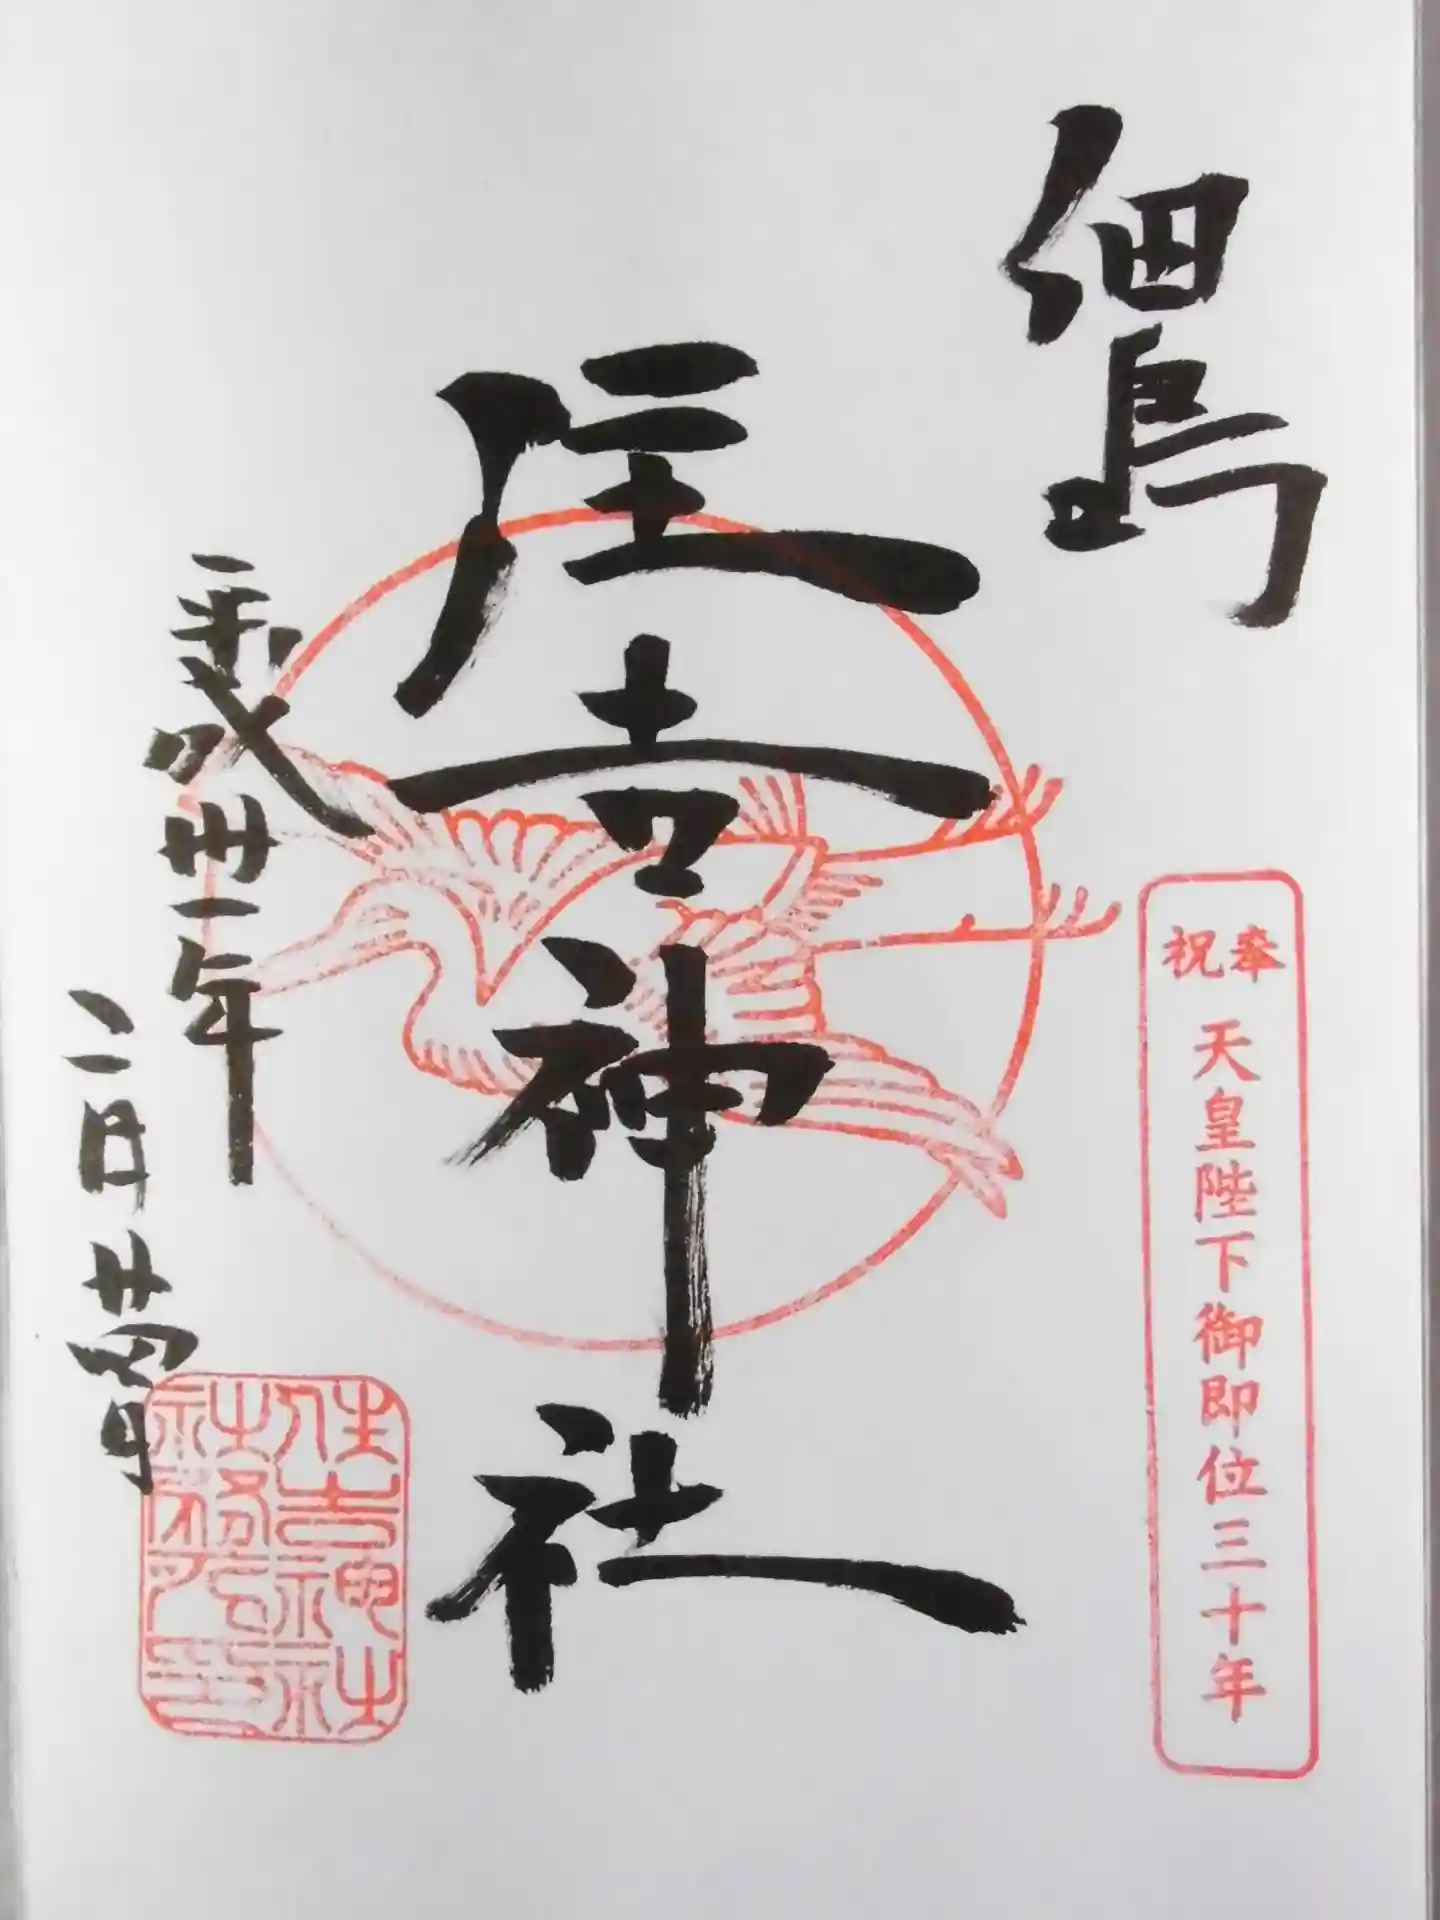 佃島
奉祝
天皇陛下御即位三十年
住吉神社
平成卅一年
二月廿四日
住吉神社
社務所印